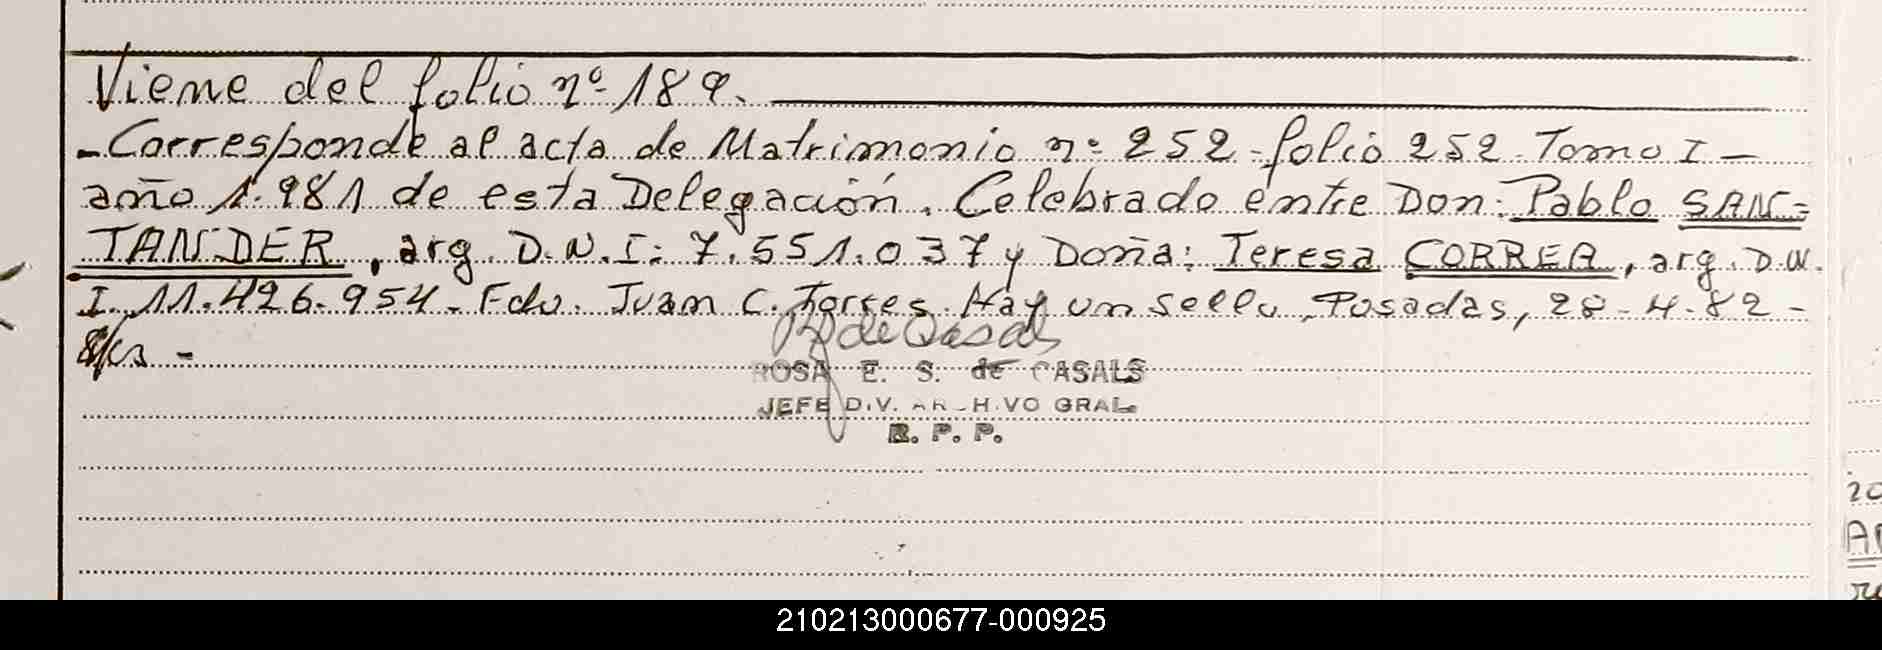 Viene del folio nº 189.
- Corresponde al acta de Matrimonio nº 252 - folio 252 - Tomo I -
año 1.981 de esta Delegación. Celebrado entre Don: Pablo SAN=
TANDER, arg. D.N.I: 7.551.037 y Doña: Teresa CORREA, arg. D.N.
I. 11.426.954 - Fdo. Juan C. Torres. Hay un sello, Posadas, 28-4-82 -
ROSA E. S. de CASALS
JEFE DIV. ARCHIVO GRAL.
R. P. P.
210213000677-000925